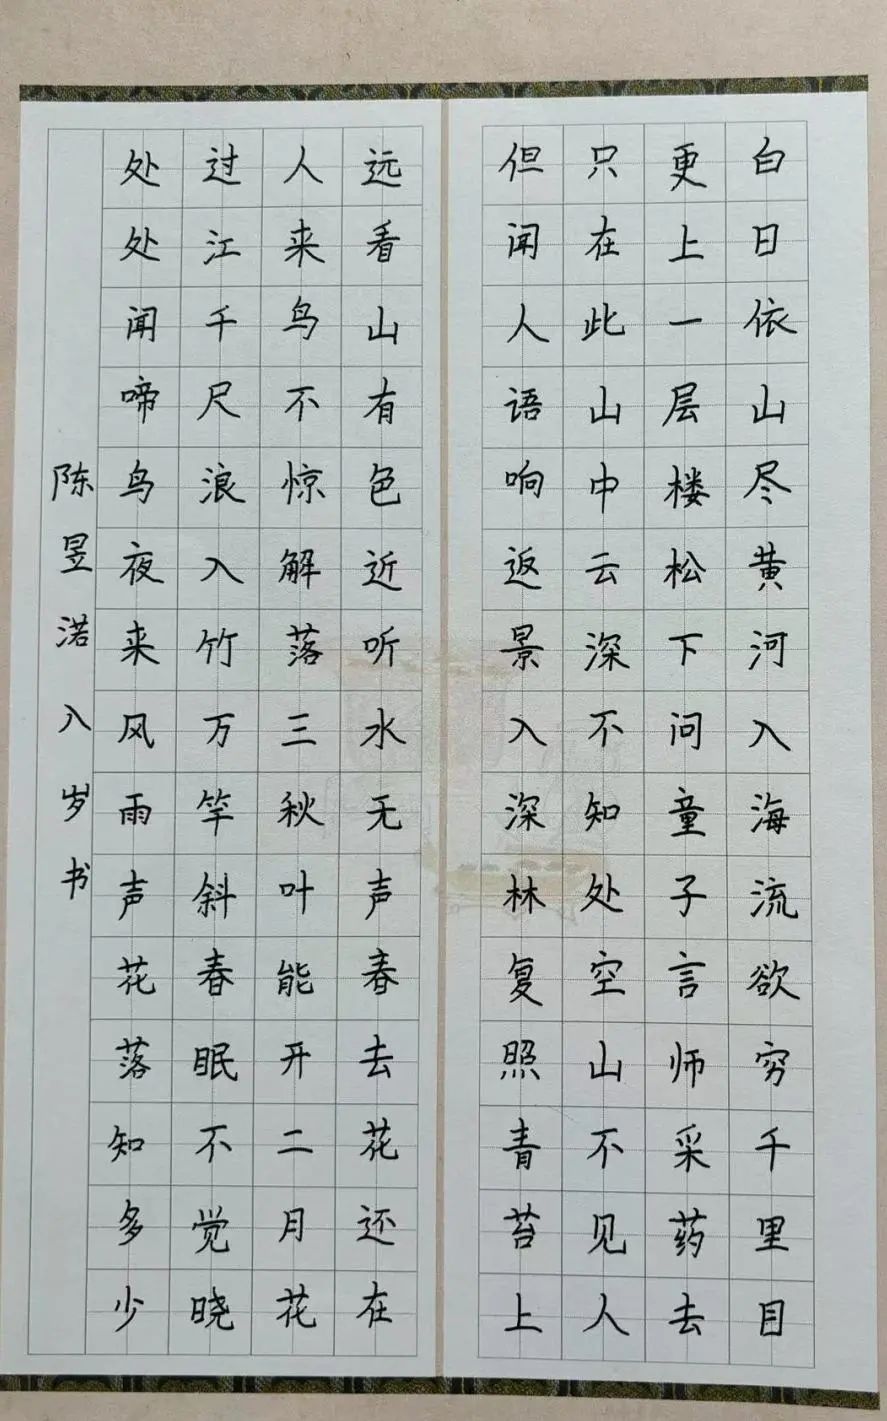 白日依山尽黄河入海流欲穷千里目
更上一层楼松下问童子言师采药去
只在此山中云深不知处空山不见人
但闻人语响返景入深林复照青苔上
远看山有色近听水无声春去花还在
人来鸟不惊解落三秋叶能开二月花
过江千尺浪入竹万竿斜春眠不觉晓
处处闻啼鸟夜来风雨声花落知多少
陈昱渃入岁书